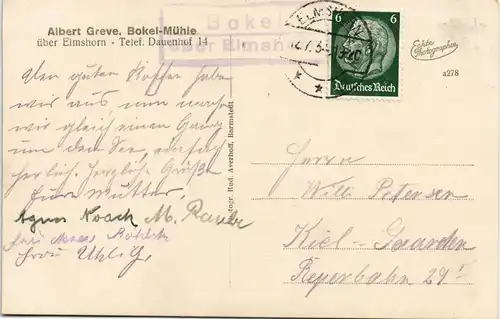 Albert Greve, Bokel-Mühle
über Elmshorn - Telef. Dauenhof 14
Bokel
über Elmshorn
ELMSHORN
6 6
Deutsches Reich
Echte
Photographie
a278
Den guten Kaffee habe
wir aus nun machen
wir gleich einen Gang
um den See, einfach
herrlich. Herzliche Grüße
Eure Mutter
Agnes Noack M.
Frau Uhlig
Photogr. Rud. Averhoff, Barmstedt
Herrn
Willi Petersen
Kiel-Gaarden
Reperbahn 29 I